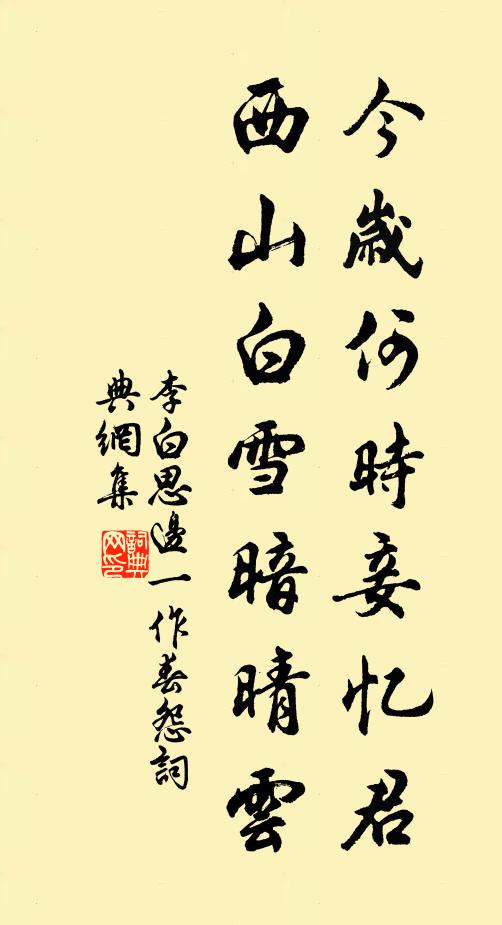 今歲何時妾忆君
西山白雪暗晴雲
李白思邊一作春怨詞
典網集
詞典网印